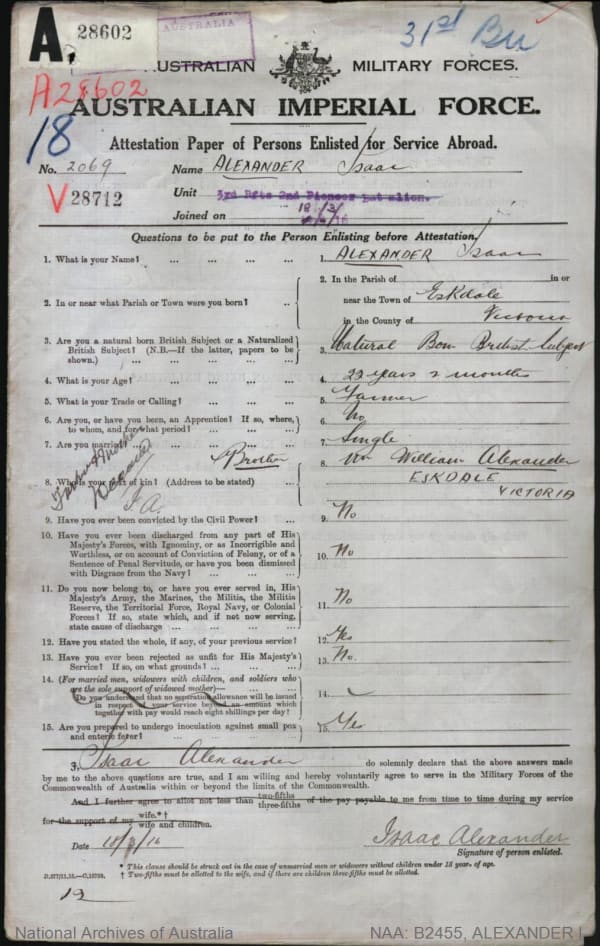 A. 28602
AUSTRALIA
31st Bn
AUSTRALIAN MILITARY FORCES.
A28602
AUSTRALIAN IMPERIAL FORCE.
18
Attestation Paper of Persons Enlisted for Service Abroad.
No. 2069 Name ALEXANDER Isaac
V 28712
Unit 3rd Rfts 2nd Pioneer Battalion.
Joined on 18/3/16
Questions to be put to the Person Enlisting before Attestation.
1. What is your Name? ... ... ... ... 1. ALEXANDER Isaac
2. In or near what Parish or Town were you born? .. 2. In the Parish of in or
near the Town of Eskdale
in the County of Victoria
3. Are you a natural born British Subject or a Naturalized
British Subject? (N.B.—If the latter, papers to be
shown.) ... ... ... ... 3. Natural Born British Subject
4. What is your Age? ... ... ... ... 4. 22 years 2 months
5. What is your Trade or Calling? ... ... ... 5. Farmer
6. Are you, or have you been, an Apprentice? If so, where,
to whom, and for what period? ... ... ... 6. No
7. Are you married? 7. Single
Father & Mother
Deceased
Brother
8. Who is your next of kin? (Address to be stated) ... 8. Mr William Alexander
ESKDALE
VICTORIA
I.A.
9. Have you ever been convicted by the Civil Power? ... 9. No
10. Have you ever been discharged from any part of His
Majesty's Forces, with Ignominy, or as Incorrigible and
Worthless, or on account of Conviction of Felony, or of a
Sentence of Penal Servitude, or have you been dismissed
with Disgrace from the Navy? ... ... ... 10. No
11. Do you now belong to, or have you ever served in, His
Majesty's Army, the Marines, the Militia, the Militia
Reserve, the Territorial Force, Royal Navy, or Colonial
Forces? If so, state which, and if not now serving,
state cause of discharge ... ... ... 11. No
12. Have you stated the whole, if any, of your previous service? 12. Yes
13. Have you ever been rejected as unfit for His Majesty's
Service? If so, on what grounds? ... ... 13. No.
14. (For married men, widowers with children, and soldiers who
are the sole support of widowed mother)—
Do you understand that no separation allowance will be issued
in respect of your service beyond an amount which
together with pay would reach eight shillings per day? 14.
15. Are you prepared to undergo inoculation against small pox
and enteric fever? ... ... ... ... 15. Yes
I, Isaac Alexander do solemnly declare that the above answers made
by me to the above questions are true, and I am willing and hereby voluntarily agree to serve in the Military Forces of the
Commonwealth of Australia within or beyond the limits of the Commonwealth.
And I further agree to allot not less than two-fifths three-fifths of the pay payable to me from time to time during my service
for the support of my wife.*† wife and children.
Date 18/3/16 Isaac Alexander
Signature of person enlisted.
* This clause should be struck out in the case of unmarried men or widowers without children under 18 years of age.
† Two-fifths must be allotted to the wife, and if there are children three-fifths must be allotted.
12
National Archives of Australia NAA: B2455, ALEXANDER I